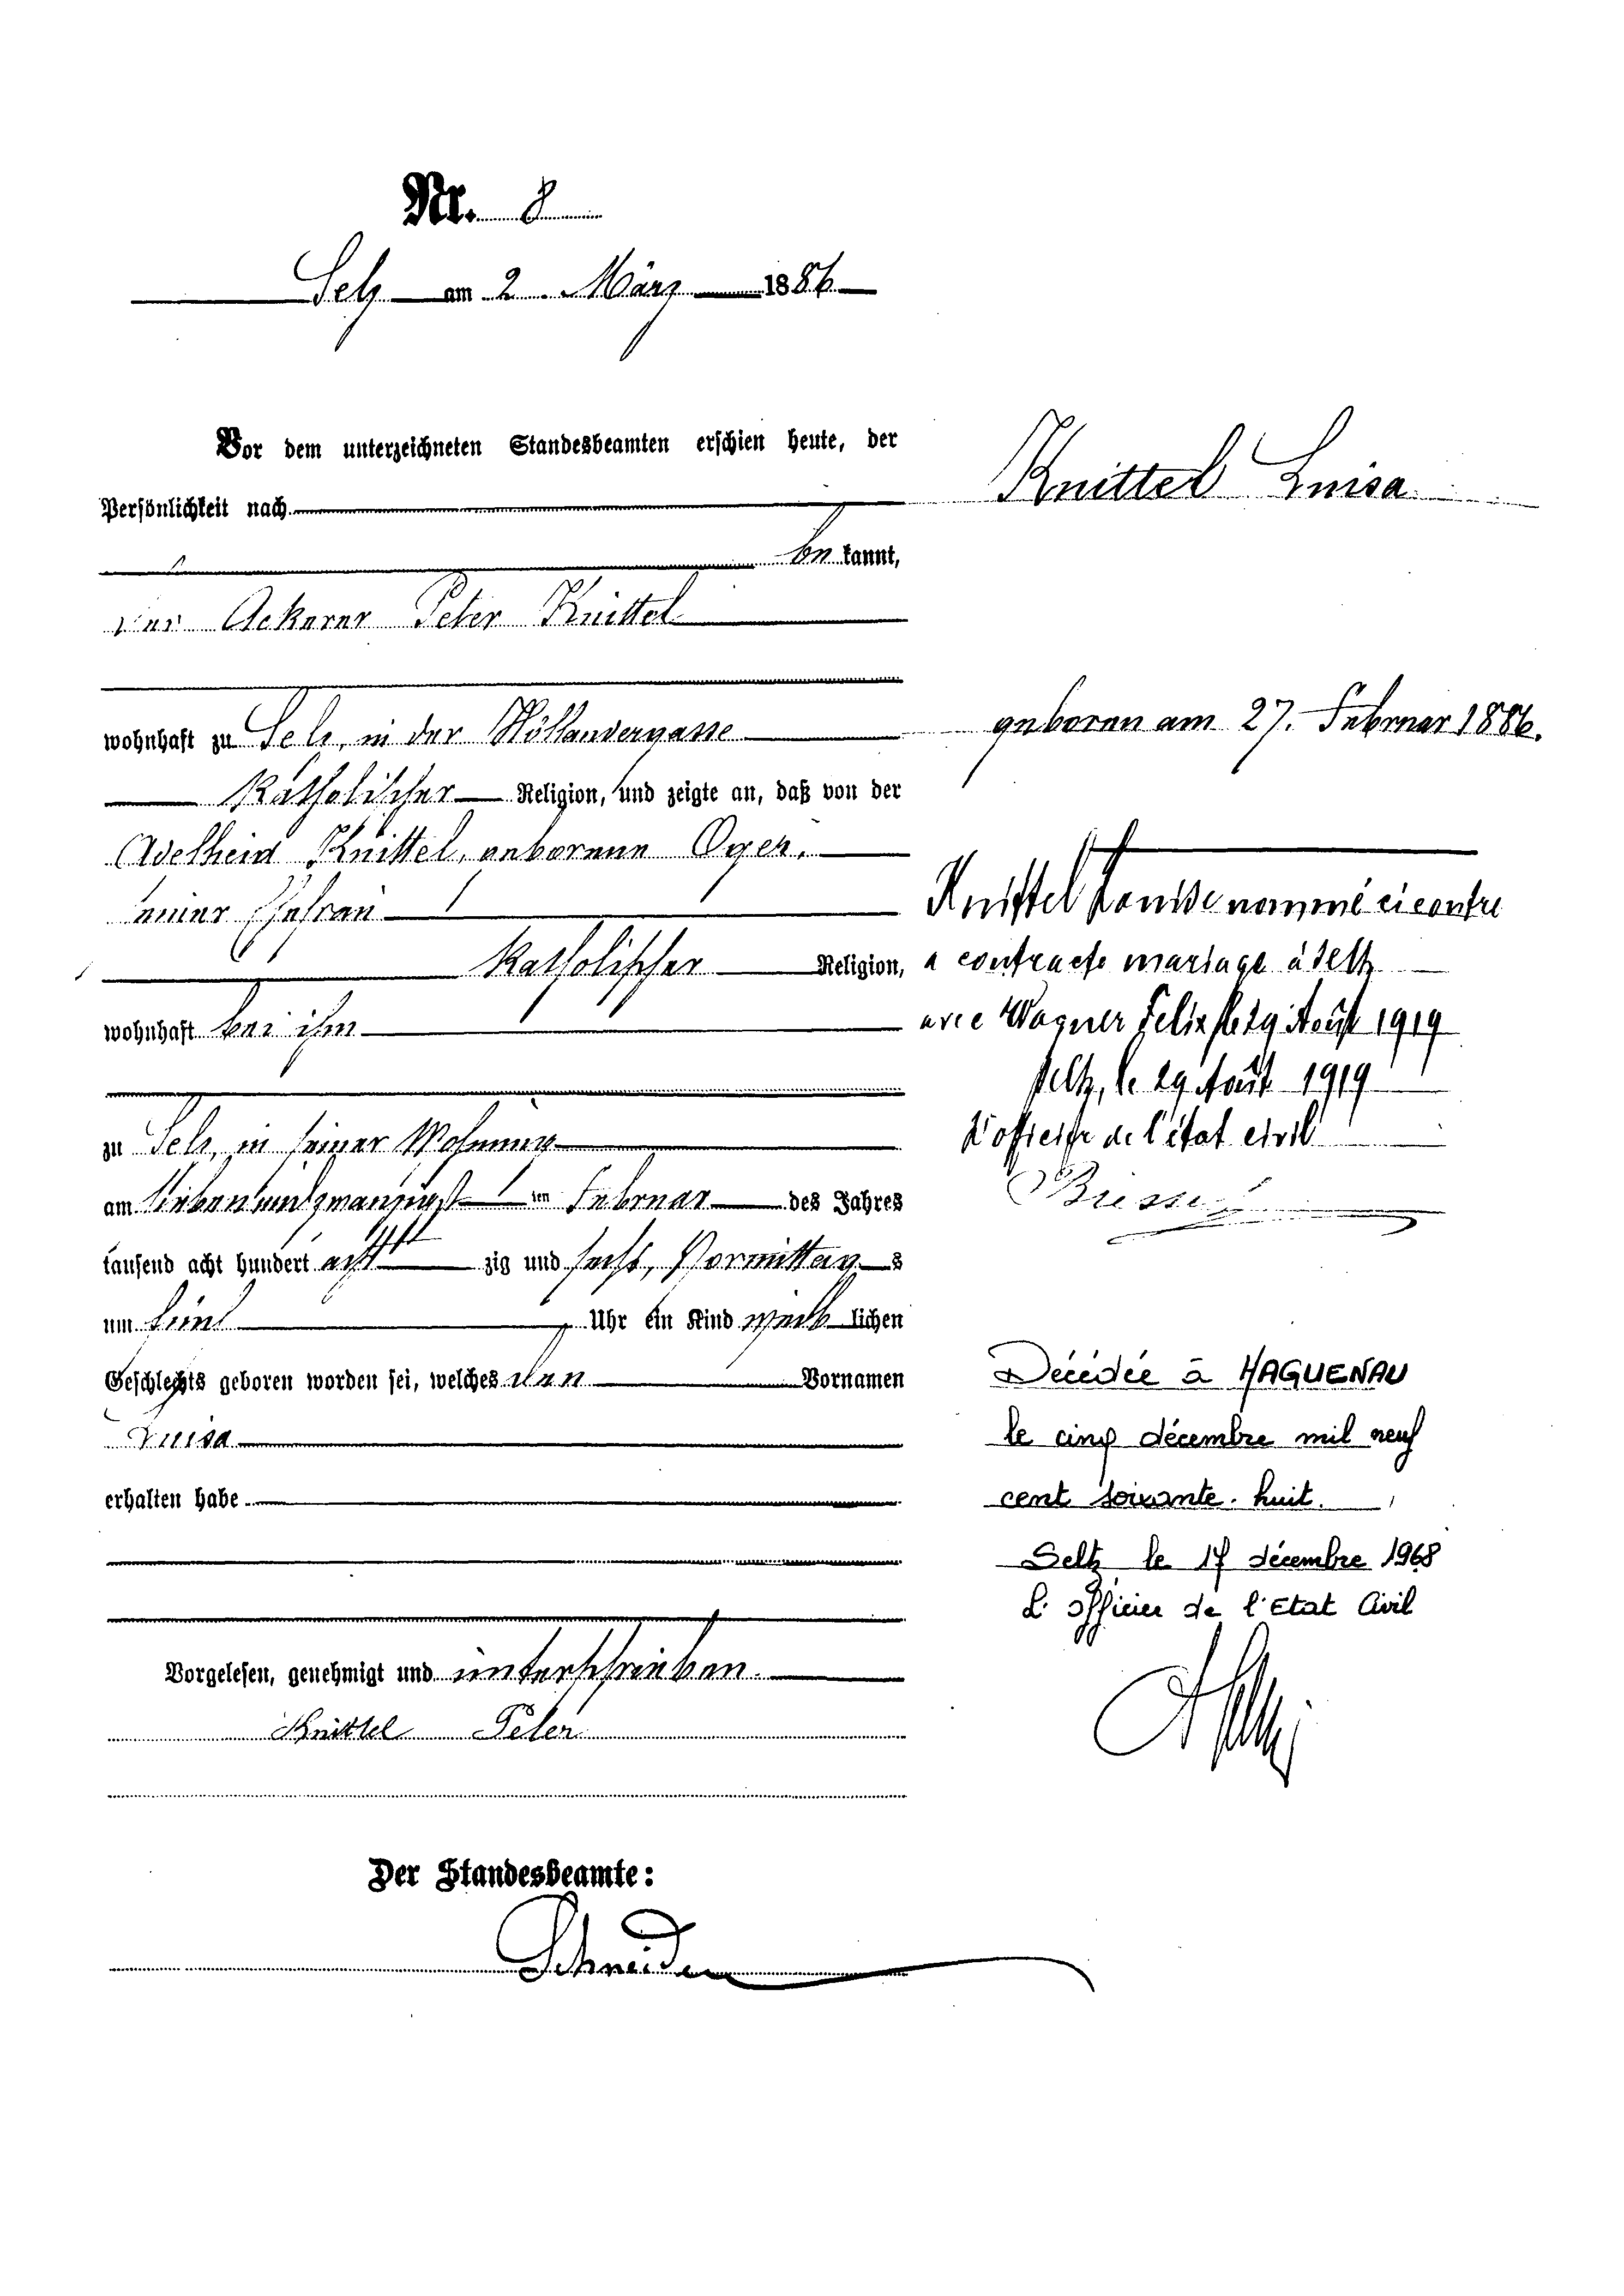 Nr. 8
Selz am 2. März 1886
Vor dem unterzeichneten Standesbeamten erschien heute, der
Persönlichkeit nach
be kannt,
der Ackerer Peter Knittel
wohnhaft zu Selz, in der
katholischer Religion, und zeigte an, daß von der
Adelheid Knittel, geborenen
seiner Ehefrau
katholischer Religion,
wohnhaft bei ihm
zu Selz, in seiner Wohnung
am siebenundzwanzigst ten Februar des Jahres
tausend acht hundert acht zig und sechs, Vormittag s
um fünf Uhr ein Kind weib lichen
Geschlechts geboren worden sei, welches den Vornamen
Luisa
erhalten habe
Vorgelesen, genehmigt und unterschrieben.
Knittel Peter
Der Standesbeamte:
Schneider
Knittel Luisa
geboren am 27. Februar 1886.
Knittel Louise nommé ci contre
a contracté mariage à Seltz
avec Wagner Felix le 29 Août 1919
Seltz, le 29 Août 1919
L'officier de l'état civil
Décédée à HAGUENAU
le cinq décembre mil neuf
cent soixante-huit.
Seltz le 17 décembre 1968
L'officier de l'Etat Civil